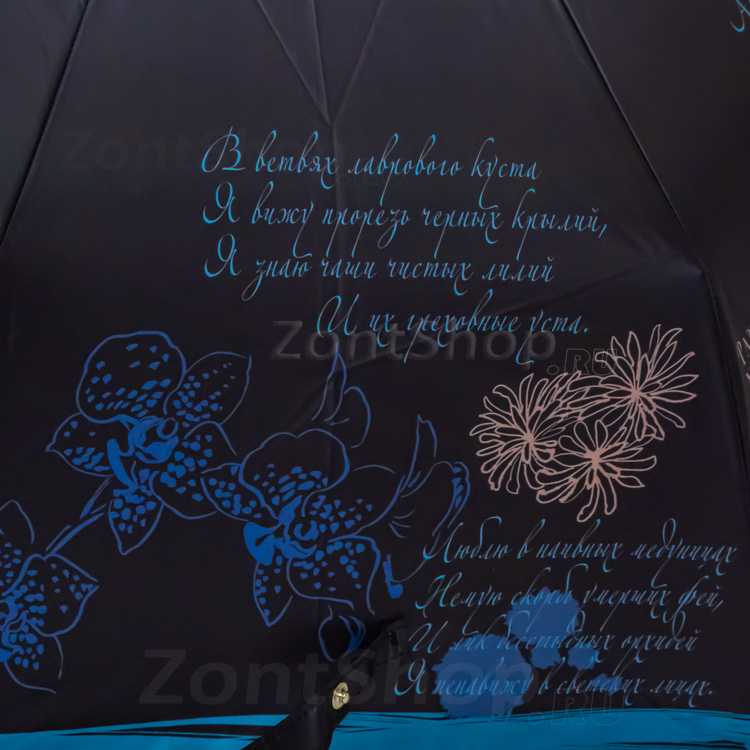 В ветвях лаврового куста
Я вижу прорезь черных крылий,
Я знаю чаши чистых лилий
И их греховные уста.
Люблю в наивных медуницах
Немую скорбь умерших фей,
И лик бесстыдных орхидей
Я ненавижу в светских лицах.
ZontShop.RU
ZontShop.RU
ZontShop.RU